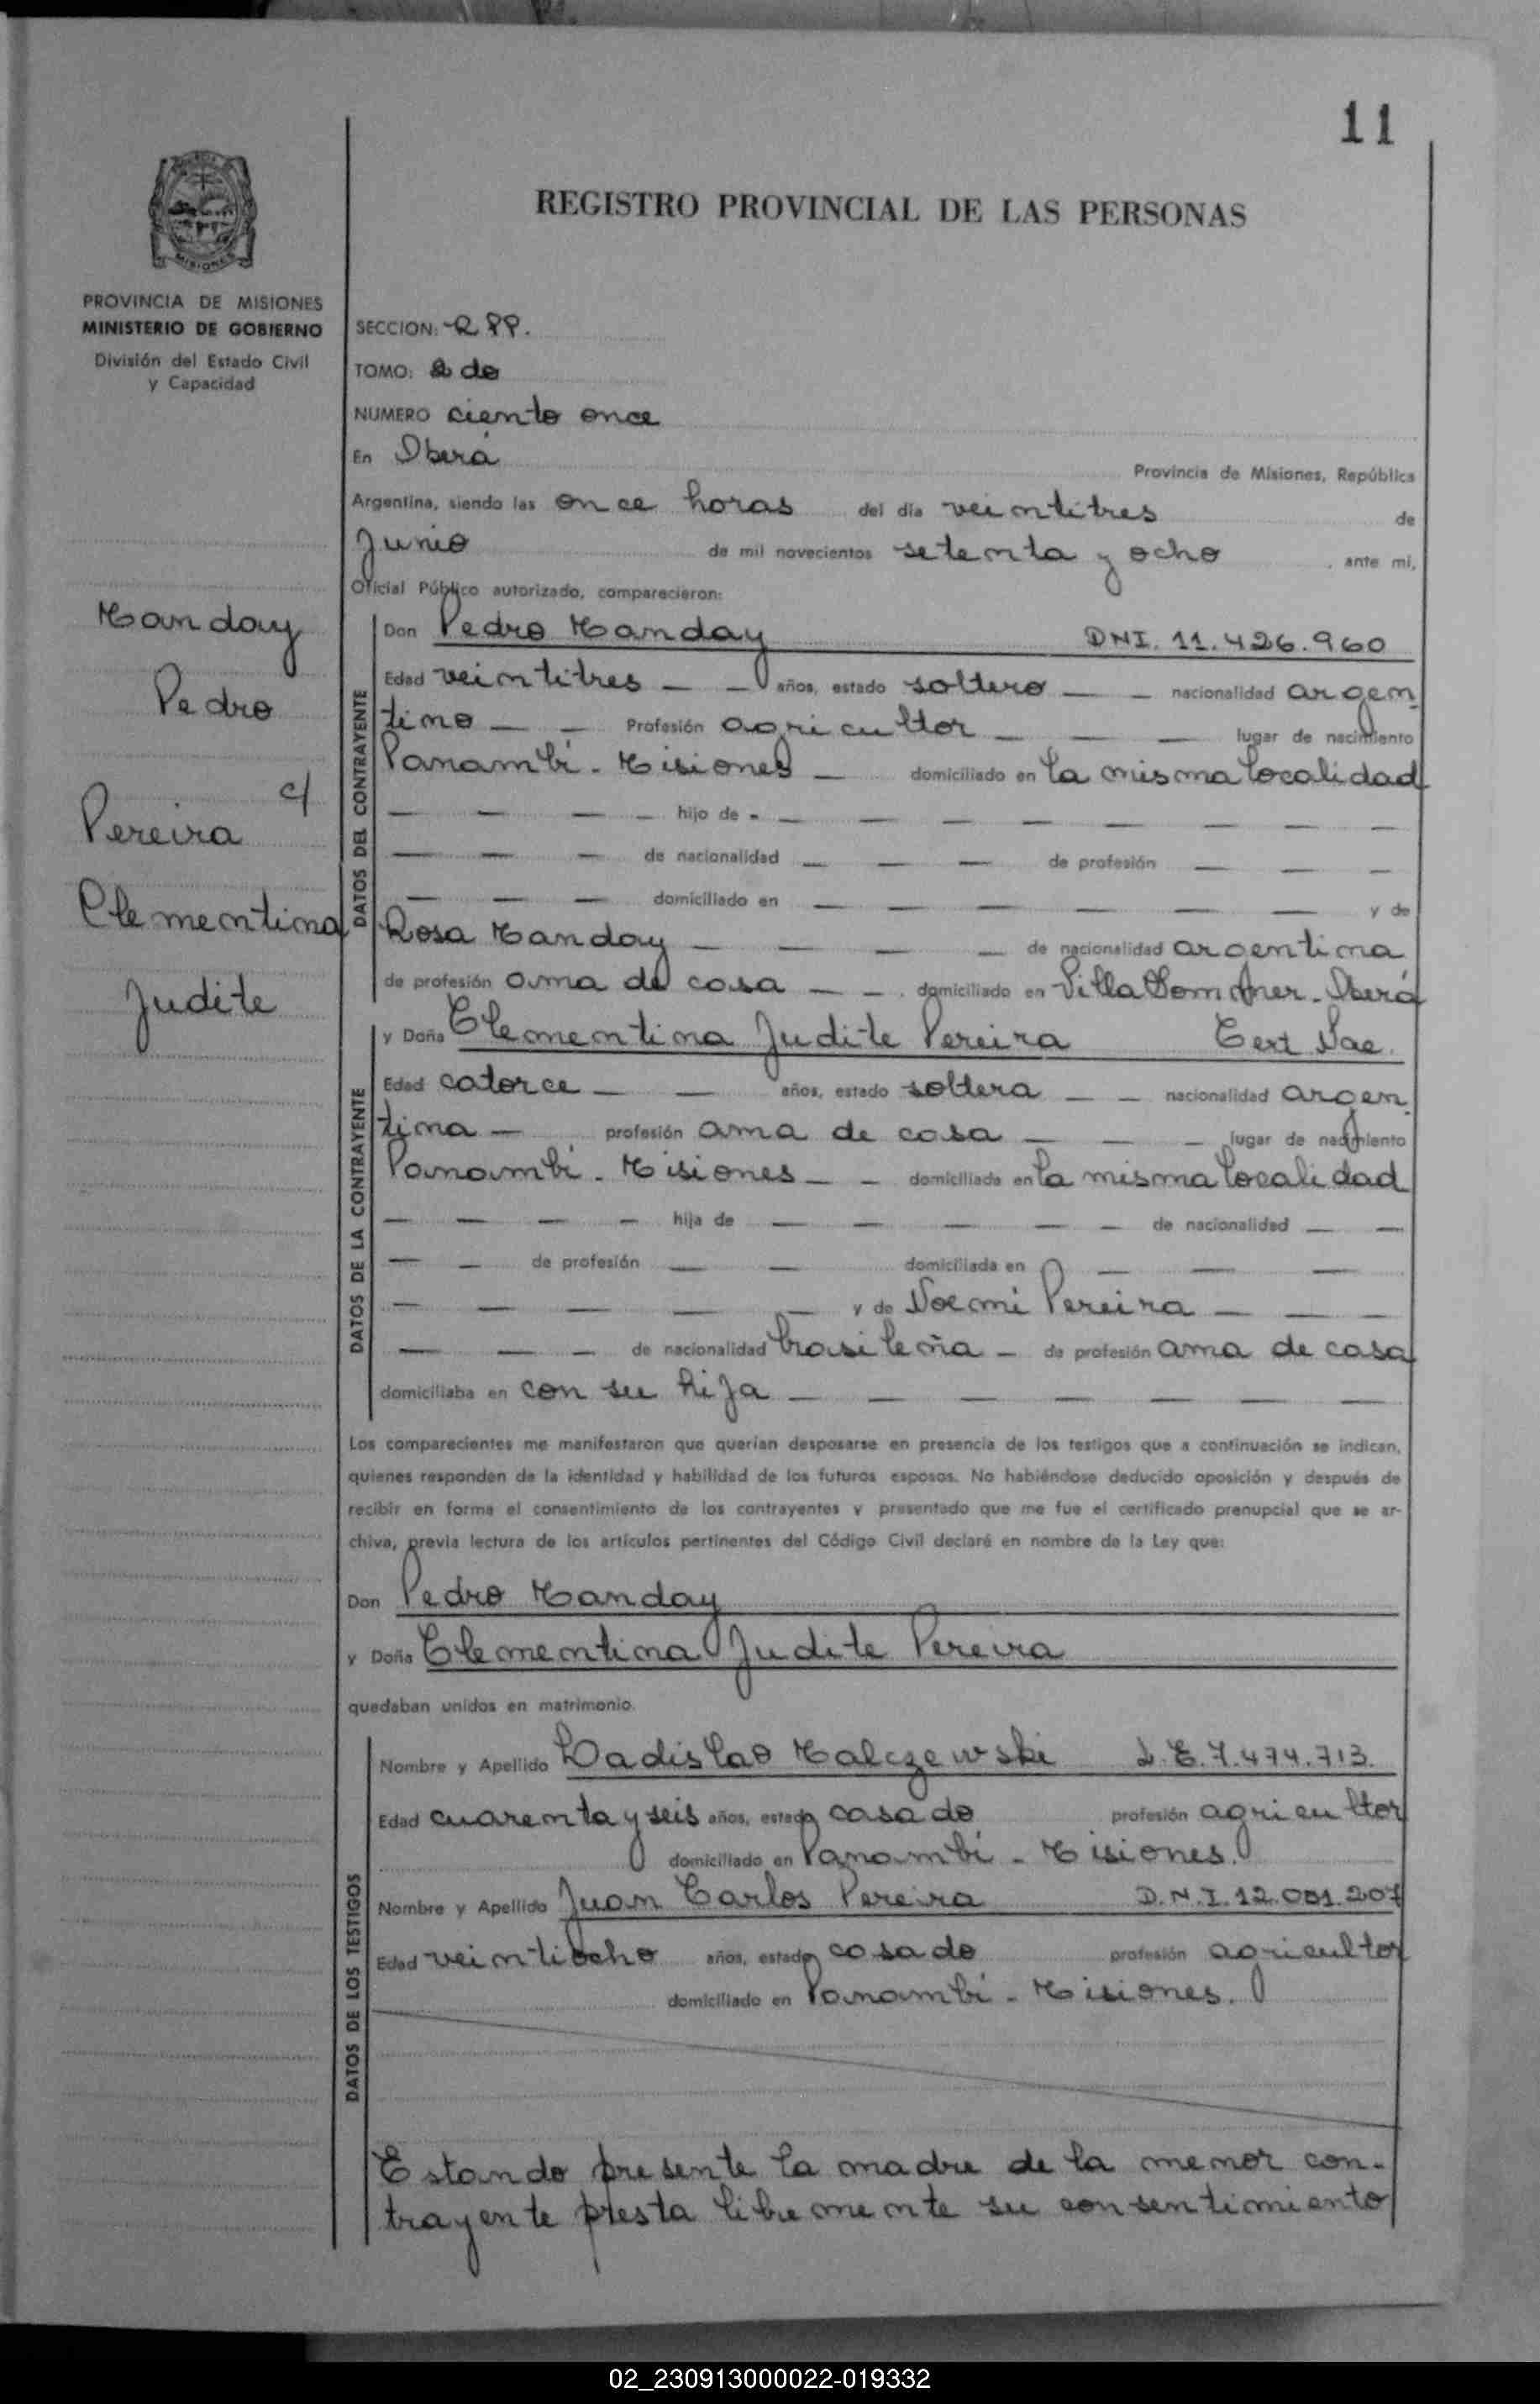 11
REGISTRO PROVINCIAL DE LAS PERSONAS
MISIONES
PROVINCIA DE MISIONES
MINISTERIO DE GOBIERNO
División del Estado Civil
y Capacidad
Manday
Pedro
c/
Pereira
Clementina
Judite
SECCION: RPP.
TOMO: 2do
NUMERO ciento once
En Oberá Provincia de Misiones, República
Argentina, siendo las once horas del día veintitres de
Junio de mil novecientos setenta y ocho, ante mí,
Oficial Público autorizado, comparecieron:
DATOS DEL CONTRAYENTE
Don Pedro Manday DNI. 11.426.960
Edad veintitres — — años, estado soltero — — nacionalidad argen-
tino — — Profesión agricultor — — — lugar de nacimiento
Panambí - Misiones — domiciliado en la misma localidad
— — — — hijo de - — — — — — — — —
— — — de nacionalidad — — — de profesión — — —
— — — domiciliado en — — — — — — y de
Rosa Manday — — — — de nacionalidad argentina
de profesión ama de casa — — . domiciliado en Villa Sommer - Oberá
DATOS DE LA CONTRAYENTE
y Doña Clementina Judite Pereira Cert Nac.
Edad catorce — — años, estado soltera — — nacionalidad argen-
tina — profesión ama de casa — — — lugar de nacimiento
Panambí - Misiones — — domiciliada en la misma localidad
— — — — hija de — — — — — de nacionalidad — —
— — de profesión — — domiciliada en — — —
— — — — — y de Noemi Pereira — — —
— — — de nacionalidad brasileña — de profesión ama de casa
domiciliaba en con su hija — — — — — — —
Los comparecientes me manifestaron que querían desposarse en presencia de los testigos que a continuación se indican,
quienes responden de la identidad y habilidad de los futuros esposos. No habiéndose deducido oposición y después de
recibir en forma el consentimiento de los contrayentes y presentado que me fue el certificado prenupcial que se ar-
chiva, previa lectura de los artículos pertinentes del Código Civil declaré en nombre de la Ley que:
Don Pedro Manday
y Doña Clementina Judite Pereira
quedaban unidos en matrimonio.
DATOS DE LOS TESTIGOS
Nombre y Apellido Ladislao Malczewski L.E. 7.474.713.
Edad cuarenta y seis años, estado casado profesión agricultor
domiciliado en Panambí - Misiones.
Nombre y Apellido Juan Carlos Pereira D.N.I. 12.001.207
Edad veintiocho años, estado casado profesión agricultor
domiciliado en Panambí - Misiones.
Estando presente la madre de la menor con-
trayente presta libremente su consentimiento
02_230913000022-019332